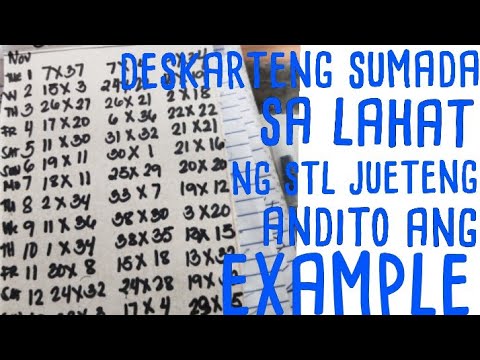 Nov
1 7X37
2 15X3
TH 3 26X27 26X21 2X18
FR 4 17X20 6X36 22X22
SAT 5 11X30 31X32 21X21
SUN 6 19X11 30X1 21X16
Mo 7 18X11 25X29
8 2X34 33X7 19X12
9 11X36 38X30 3X20
TH 10 1X34 38X35
FR 11 20X8 15X18
SAT 12 24X32 24X28
17X4
DESKARTENG SUMADA
SA LAHAT
NG STL JUETENG
ANDITO ANG
EXAMPLE